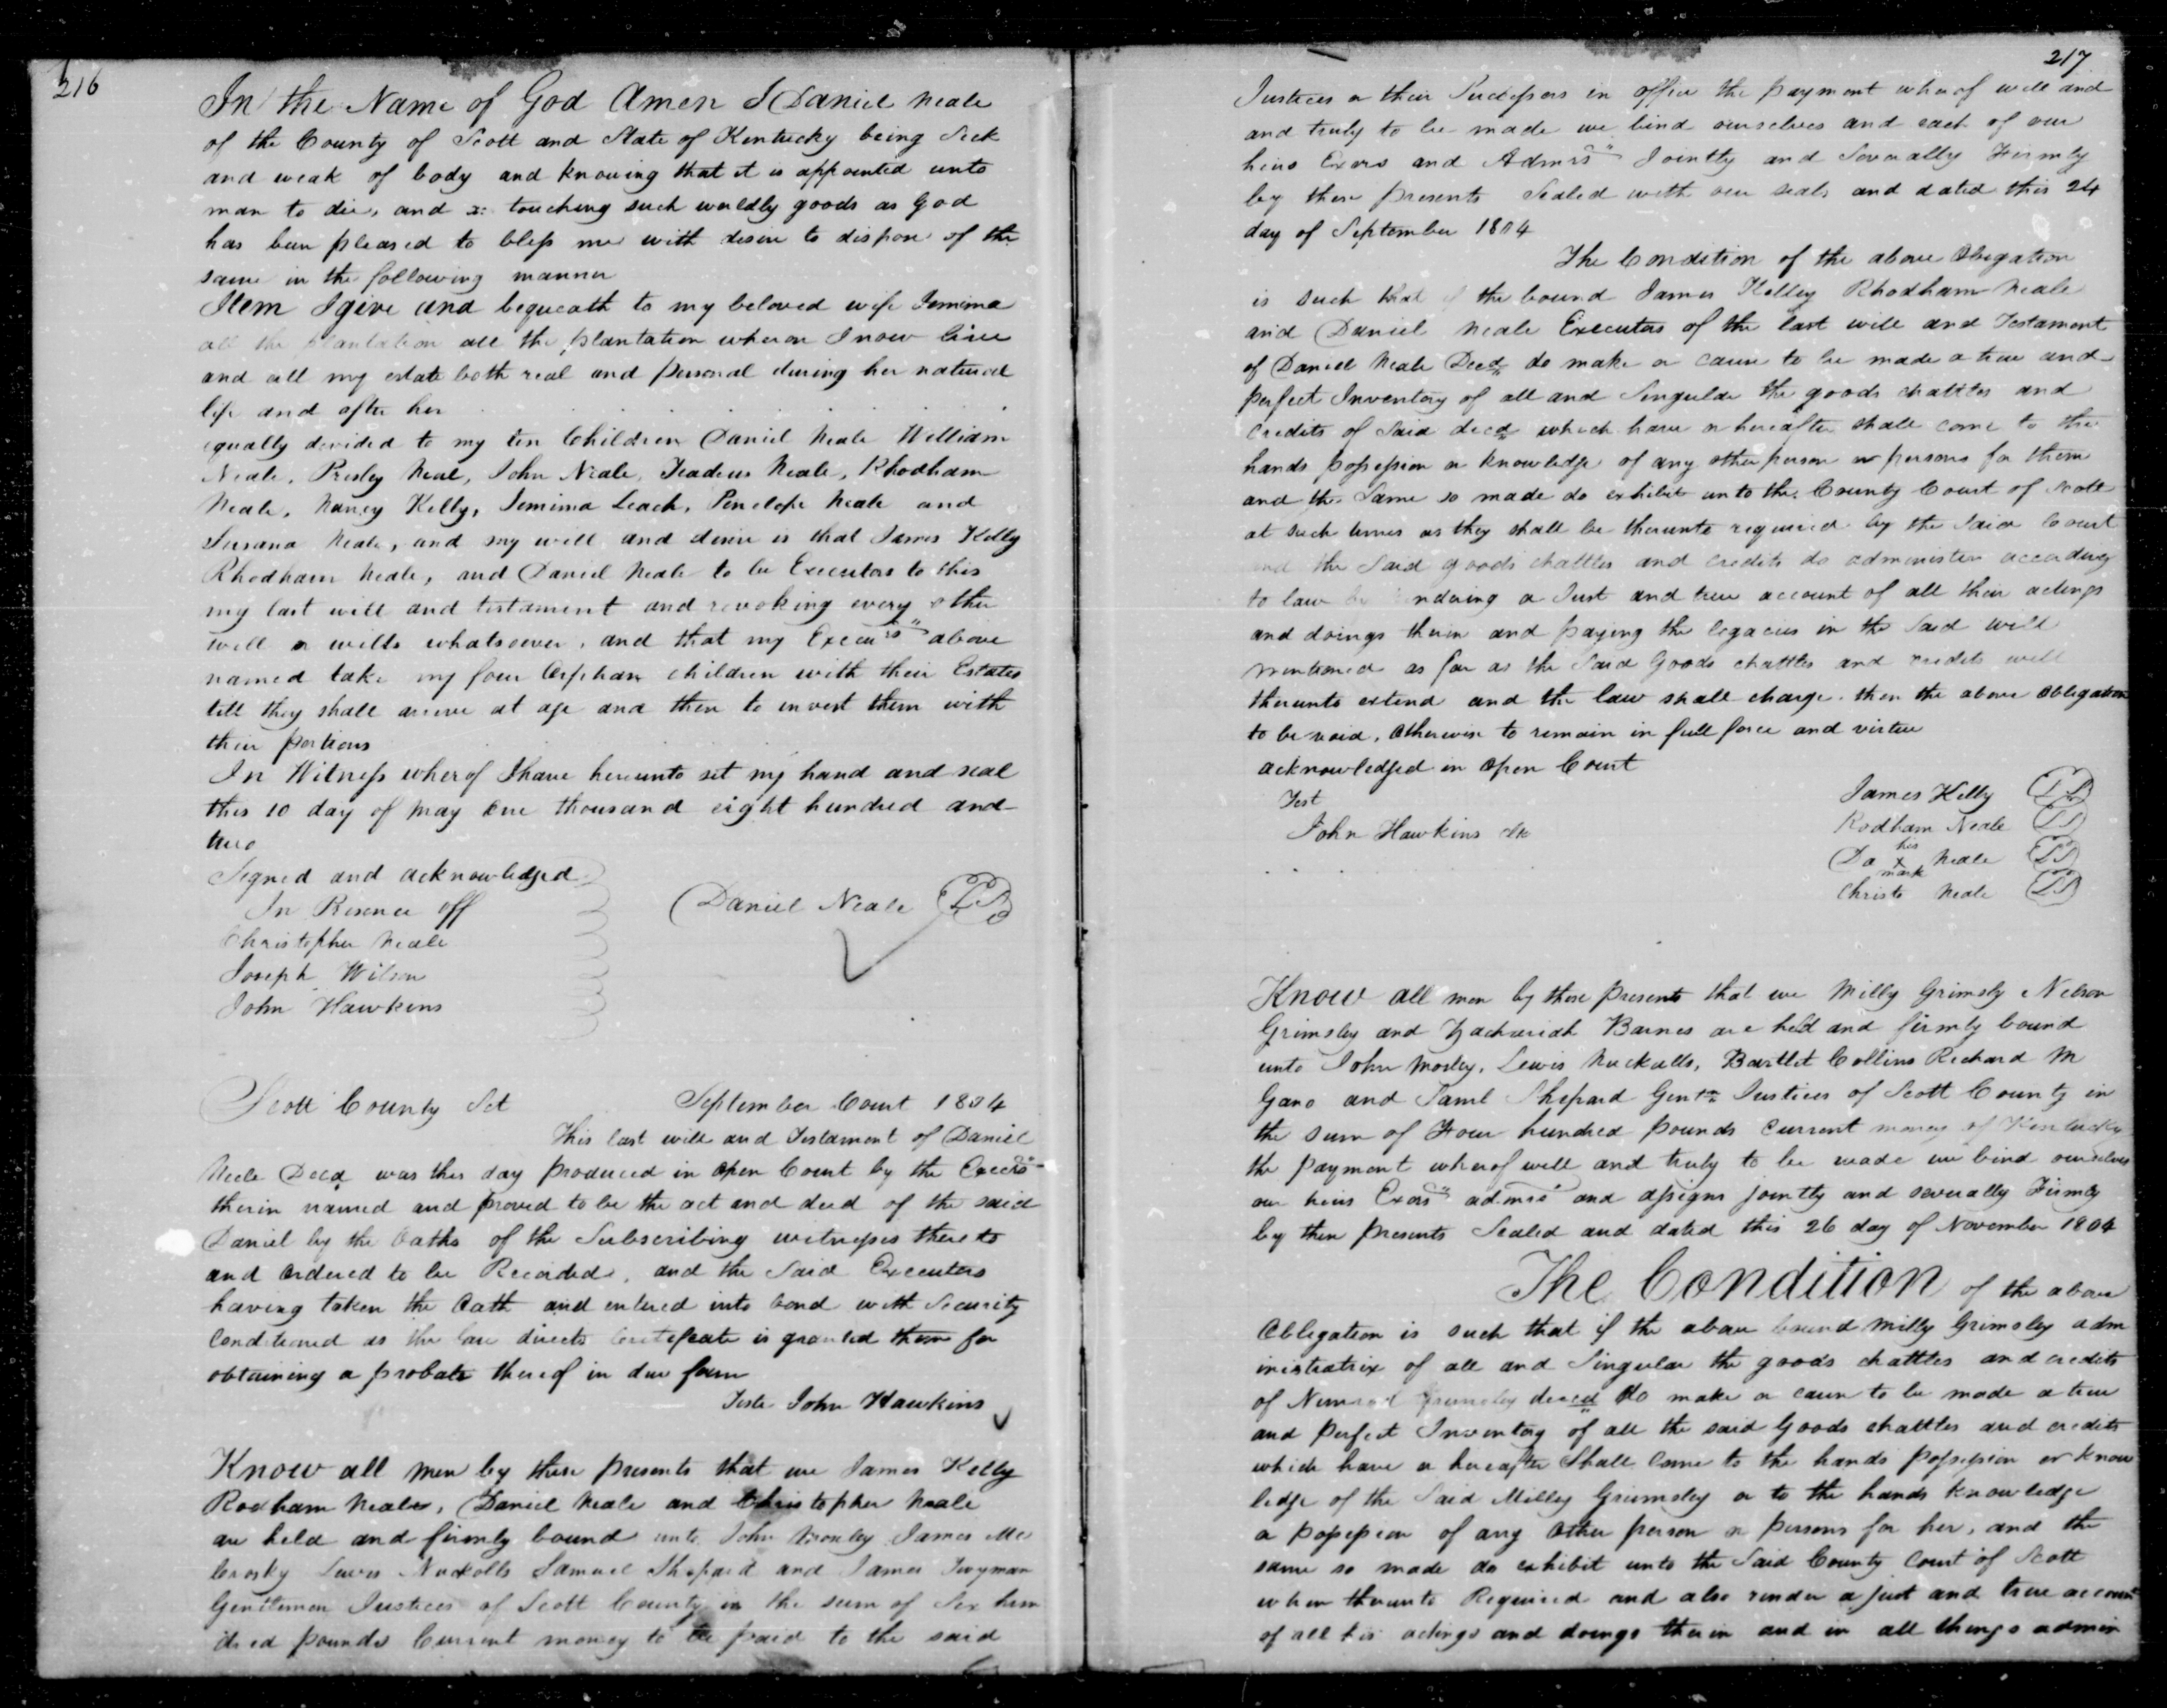 216
In the Name of God Amen I Daniel Neale
of the County of Scott and State of Kentucky being Sick
and weak of body and knowing that it is appointed unto
man to die, and touching such worldly goods as God
has been pleased to bless me with desire to dispose of the
same in the following manner
Item I give and bequeath to my beloved wife Jemima
all the plantation all the plantation wheron I now live
and all my estate both real and personal during her natural
life and after her
equally devided to my ten Children Daniel Neale William
Neale, Presley Neal, John Neale, Teadeus Neale, Rhodham
Neale, Nancy Kelly, Jemima Leach, Penelope Neale and
Susana Neale, and my will and desire is that James Kelly
Rhodham Neale, and Daniel Neale to be Executors to this
my last will and testament and revoking every other
will or wills whatsoever, and that my Execurs above
named take my four Orphan children with their Estates
till they shall arrive at age and then to invest them with
their portions
In Witness wherof I have hereunto set my hand and seal
this 10 day of may One thousand eight hundred and
two
Signed and acknowledged
In Resence off
Daniel Neale LS
Christopher Neale
Joseph Wilson
John Hawkins
Scott County Sct September Court 1804
This last will and Testament of Daniel
Neele Decd was this day produced in Open Court by the Execrs
therin named and proved to be the act and deed of the said
Daniel by the Oaths of the Subscribing witnesses thereto
and Ordered to be Recorded, and the Said Executors
having taken the Oath and entered into bond with Security
Conditioned as the law directs Certificate is granted them for
obtaining a probate thereof in due form
Teste John Hawkins
Know all men by these presents that we James Kelly
Rodham Neale, Daniel Neale and Christopher Neale
are held and firmly bound unto John Mosley James Mc
Crosky Lewis Nuckolls Samuel Shepard and James Twyman
Gentlemen Justices of Scott County in the sum of Six hun
dred pounds Current money to be paid to the said
217
Justices or their Successors in office the payment wherof well and
and truly to be made we bind ourselves and each of our
heirs Exors and Admrs Jointly and Severally Firmly
by these presents Sealed with our seals and dated this 24
day of September 1804
The Condition of the above Obigation
is such that if the bound James Kelley Rhodham Neale
and Daniel Neale Executors of the last will and Testament
of Daniel Neale Decd do make or cause to be made a true and
perfect Inventory of all and Singular the goods chattles and
Credits of Said decd which have or hereafter shall come to the
hands possession or knowledge of any other person or persons for them
and the Same so made do exhibit unto the County Court of Scott
at such times as they shall be therunto required by the Said Court
and the Said goods chattles and credits do administer according
to law by rendering a Just and true account of all their actings
and doings therin and paying the legacies in the Said will
mentioned as far as the Said Goods chattles and credits will
therunto extend and the law shall charge. then the above Obligation
to be void, Otherwise to remain in full force and virtue
acknowledged in Open Court
Test
John Hawkins Clk
James Kelly LS
Rodham Neale LS
his
Da x Neale LS
mark
Christo Neale LS
Know all men by these presents that we Milly Grimsly Nelson
Grimsley and Zachariah Barnes are held and firmly bound
unto John Mosley, Lewis Nuckolls, Bartlet Collins Richard M
Gano and Saml Shepard Gentn Justices of Scott County in
the sum of Four hundred pounds Current money of Kentucky
the payment wherof well and truly to be made we bind ourselves
our heirs Exors admrs and assigns jointly and severally Firmly
by these presents Sealed and dated this 26 day of November 1804
The Condition of the above
Obligation is such that if the above bound Milly Grimsley adm
inistratrix of all and Singular the goods chattles and credits
of Nimrod Grimsley deced do make or cause to be made a true
and perfect Inventory of all the said Goods chattles and credits
which have or hereafter Shall Come to the hands possession or know
ledge of the Said Milley Grimsley or to the hands knowledge
or possession of any Other person or persons for her, and the
same so made do exhibit unto the Said County Court of Scott
when therunto Required and also render a just and true account
of all his actings and doings therin and in all things admin